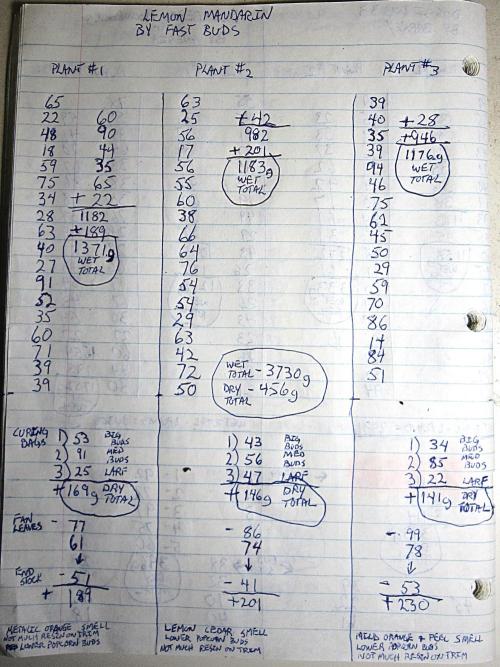 LEMON MANDARIN
BY FAST BUDS
PLANT #1
65
22
48
18
59
75
34
28
63
40
27
91
52
35
60
71
39
39
60
90
44
35
65
+ 22
1182
+189
1371g
WET
TOTAL
CURING
BAGS
1) 53 BIG BUDS
2) 91 MED BUDS
3) 25 LARF
+169g DRY TOTAL
FAN
LEAVES
- 77
61
↓
END
STOCK
- 51
+ 189
METALIC ORANGE SMELL
NOT MUCH RESIN ON TRIM
LOWER POPCORN BUDS
PLANT #2
63
25
56
17
56
55
60
38
66
64
76
54
54
29
63
42
72
50
+42
982
+201
1183g
WET
TOTAL
WET
TOTAL - 3730g
DRY
TOTAL - 456g
1) 43 BIG BUDS
2) 56 MED BUDS
3) 47 LARF
+146g DRY TOTAL
- 86
74
↓
- 41
+201
LEMON CEDAR SMELL
LOWER POPCORN BUDS
NOT MUCH RESIN ON TRIM
PLANT #3
39
40
35
39
94
46
75
62
45
50
29
59
70
86
14
84
51
+ 28
+946
1176g
WET
TOTAL
1) 34 BIG BUDS
2) 85 MED BUDS
3) 22 LARF
+141g DRY TOTAL
- 99
78
↓
- 53
+230
MILD ORANGE + PEEL SMELL
LOWER POPCORN BUDS
NOT MUCH RESIN ON TRIM